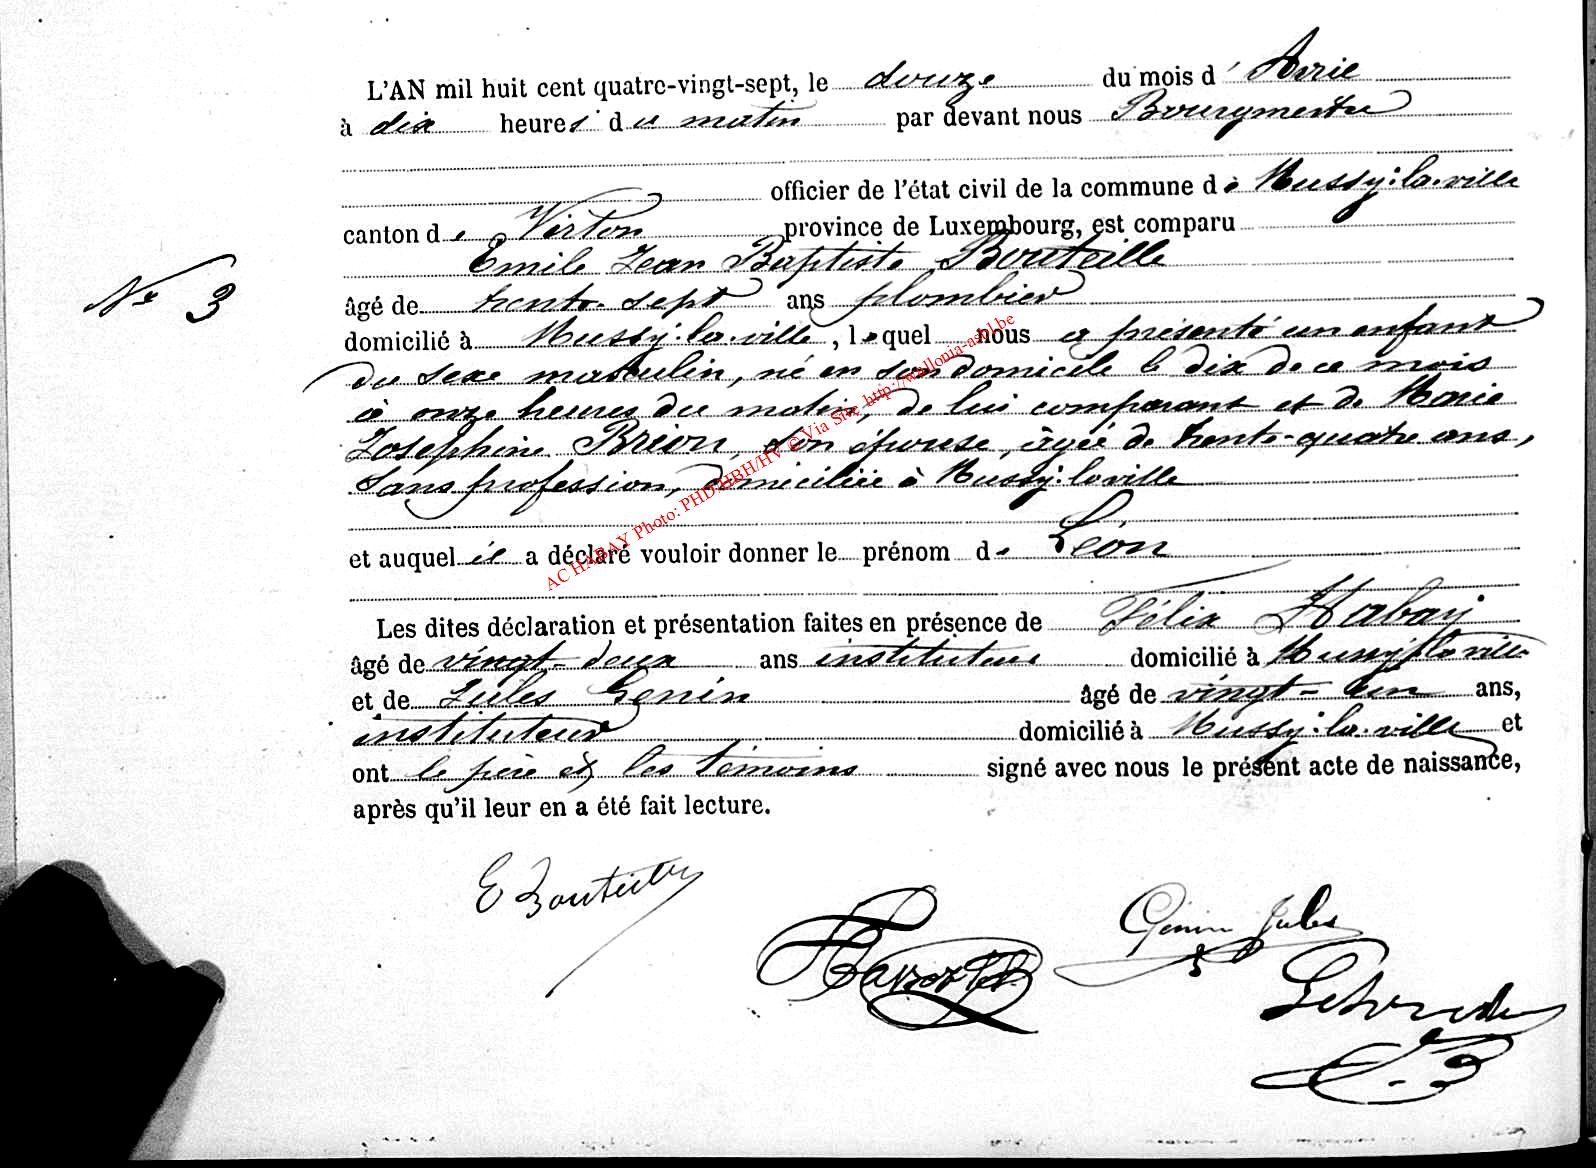 L'AN mil huit cent quatre-vingt-sept, le douze du mois d'Avril
à dix heures du matin par devant nous Bourgmestre
officier de l'état civil de la commune de Mussy-la-ville
canton de Virton province de Luxembourg, est comparu
Emile Jean Baptiste Bouteille
N° 3
âgé de trente-sept ans plombier
domicilié à Mussy-la-ville, lequel nous a présenté un enfant
du sexe masculin, né en son domicile le dix de ce mois
à onze heures du matin, de lui comparant et de Marie
Joséphine Brion, son épouse, âgée de trente-quatre ans,
sans profession, domiciliée à Mussy-la ville
et auquel il a déclaré vouloir donner le prénom de Léon
AC HABAY Photo: PHD/HBH/HV © Via Site http://wallonia-asbl.be
Les dites déclaration et présentation faites en présence de Félix Habay
âgé de vingt-deux ans instituteur domicilié à Mussy-la-ville
et de Jules Genin âgé de vingt-un ans,
instituteur domicilié à Mussy-la-ville et
ont le père et les témoins signé avec nous le présent acte de naissance,
après qu'il leur en a été fait lecture.
E Bouteille
Genin Jules